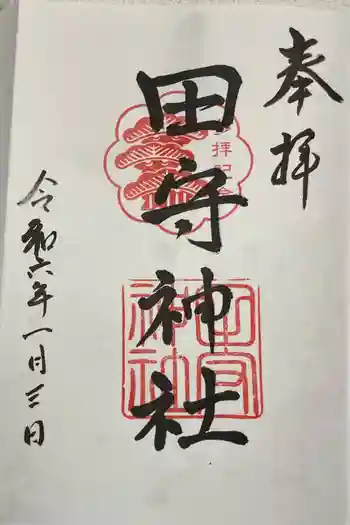 奉拝
田守神社
令和六年一月三日
田守神社